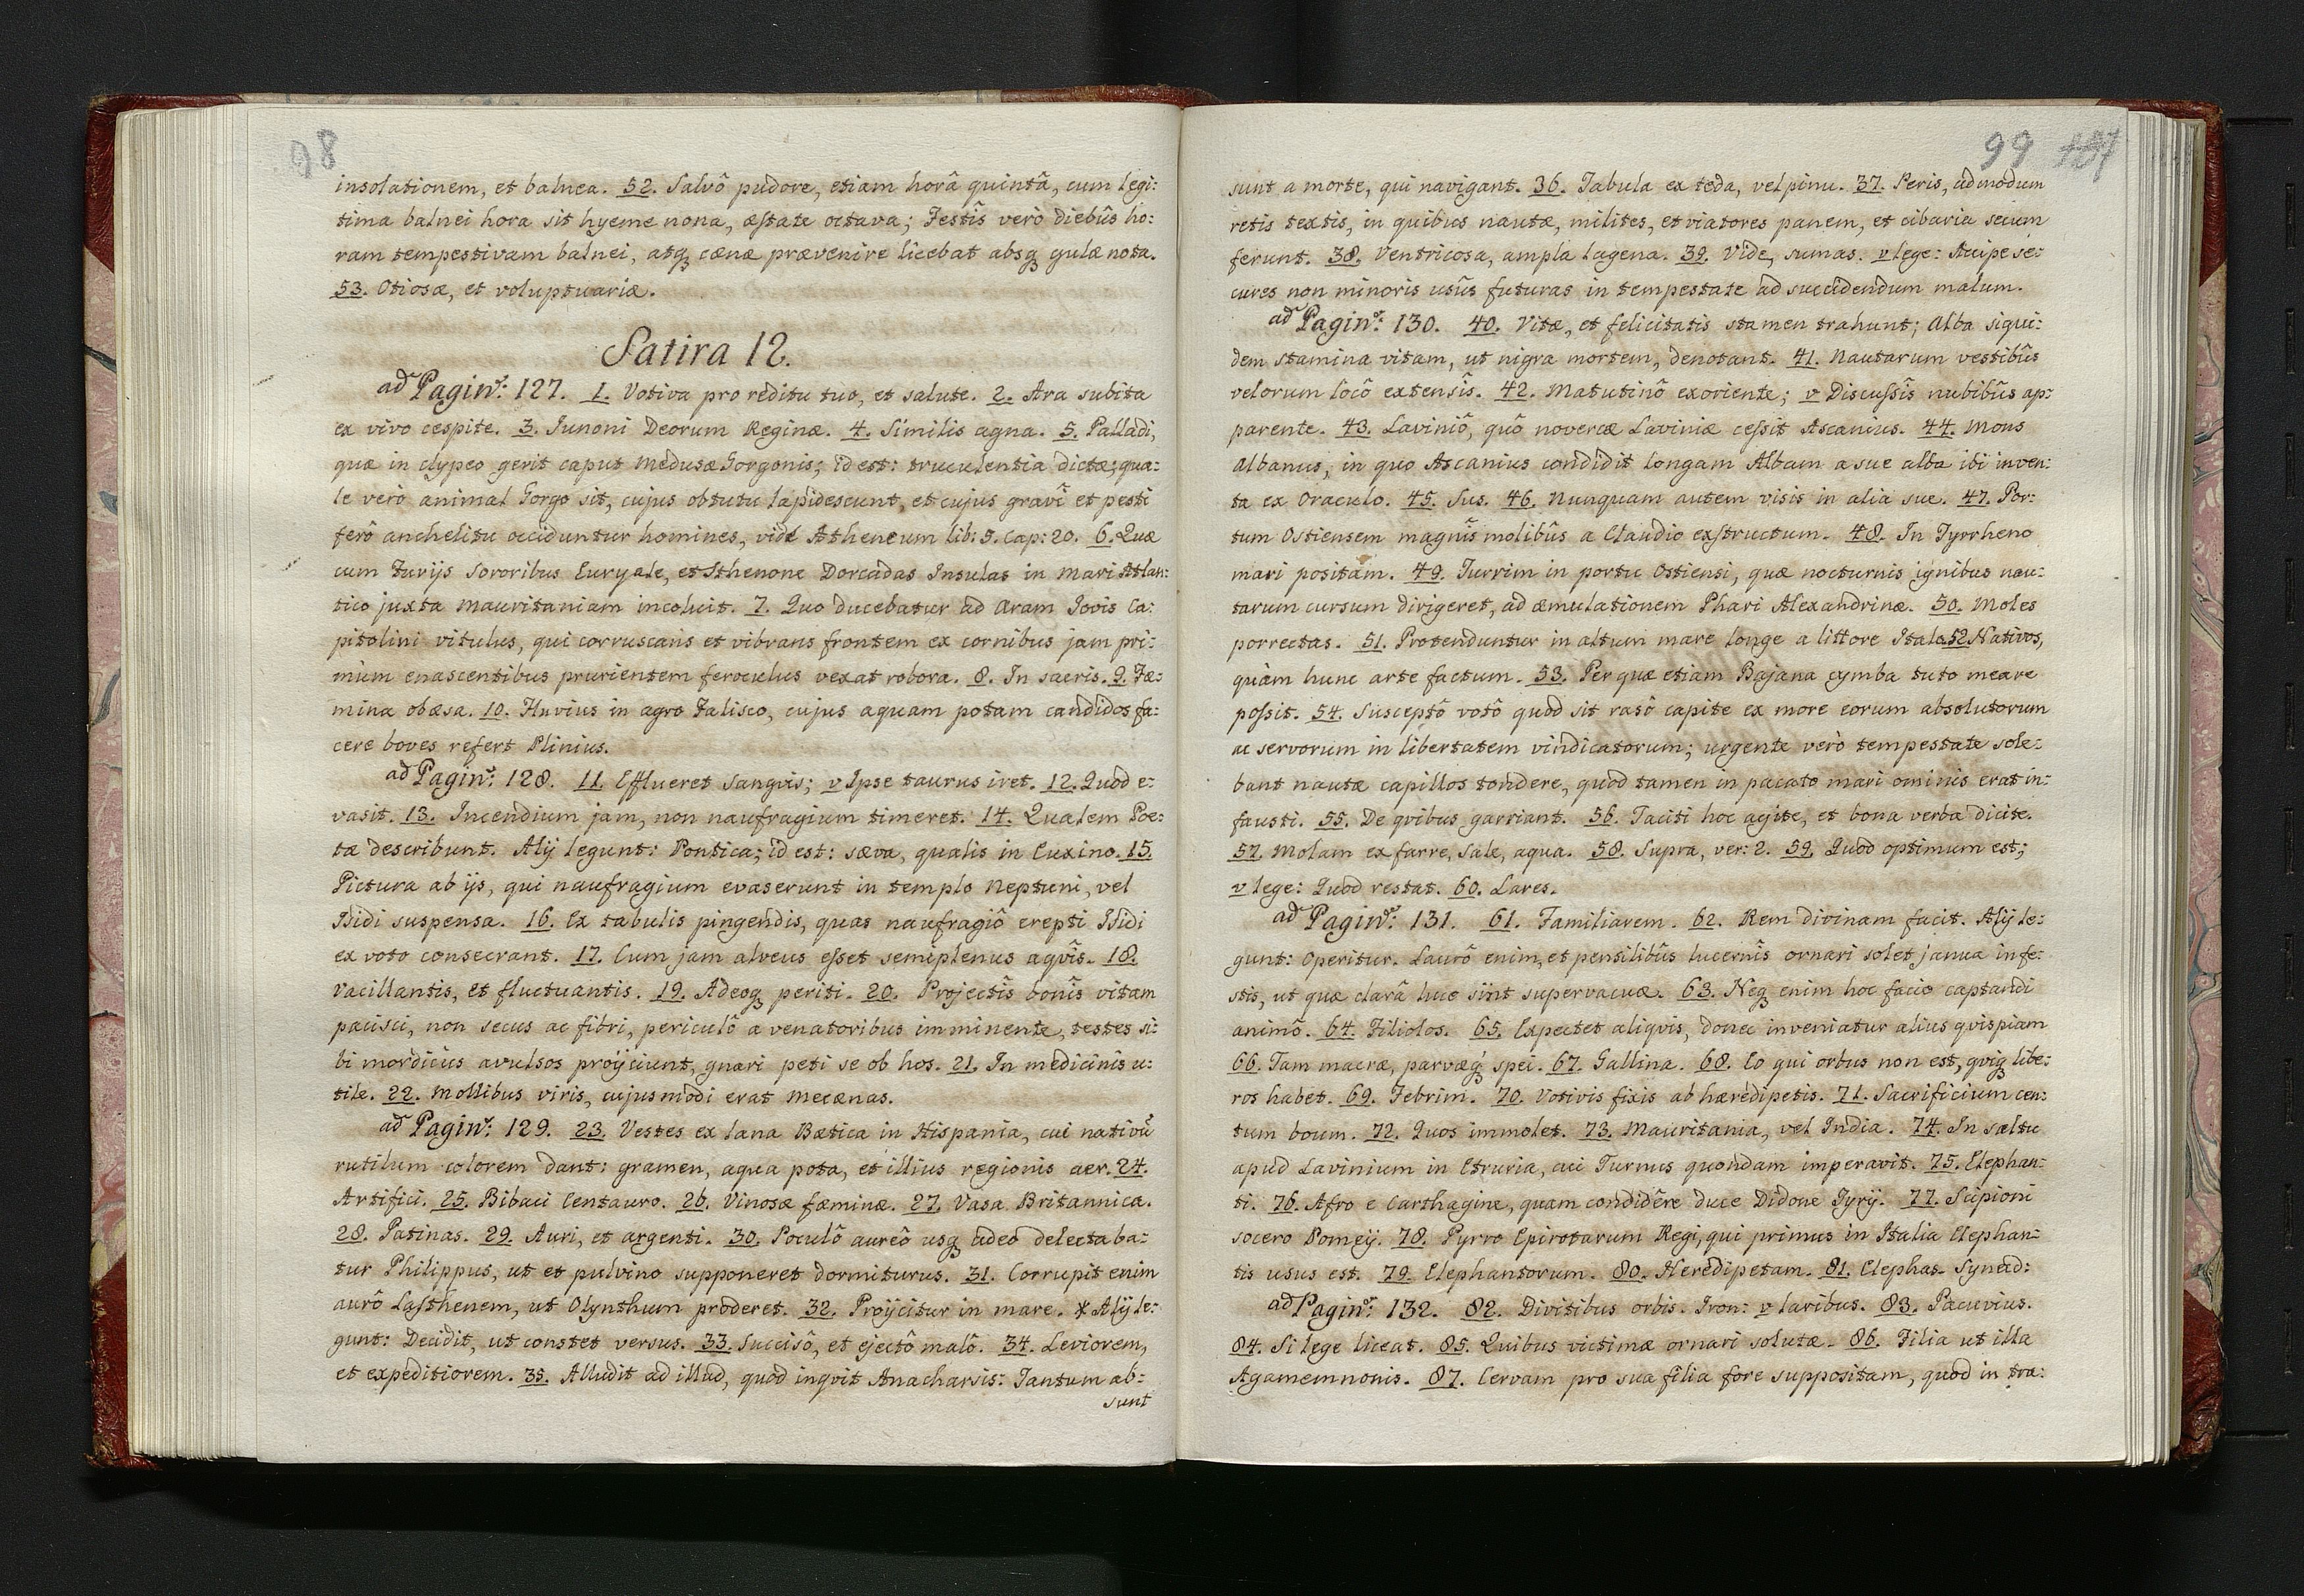 98
insolationem, et balnea. 52. Salvô pudore, etiam horâ quintâ, cum legi:
tima balnei hora sit hyeme nona, æstate octava; Festis̃ verò diebûs ho:
ram tempestivam balnei, atq; cænæ prævenire licebat absq; gulæ nota.
53. Otiosæ, et voluptuariæ.
Satira 12.
ad Pagin: 127. 1. Votiva pro reditu tuo, et salute. 2. Ara subita
ex vivo cespite. 3. Junoni Deorum Reginæ. 4. Similis agna. 5. Palladi,
quæ in clypeo gerit caput Medusæ Gorgonis; id est: truculentia dictæ; qua:
le verò animal Gorgo sit, cujus obtutu lapidescunt, et cujus gravi et pesti
ferô anchelitu occiduntur homines, vide Atheneum lib: 5. Cap: 20. 6. Quæ
cum Furijs Sororibus Euryale, et Sthenone Dorcadas Insulas in Mari Atlan:
tico juxta Mauritaniam incoluit. 7. Quo ducebatur ad Aram Jovis Ca:
pitolini vitulus, qui corruscans et vibrans frontem ex cornibus jam pri:
mùm enascentibus prurientem feroculus vexat robora. 8. In sacris. 9. Fæ:
mina obæsa. 10. Fluvius in agro Falisco, cujus aquam potam candidos fa:
cere boves refert Plinius.
ad Pagin: 128. 11. Efflueret sangvis; v Ipse taurus iret. 12. Quod e:
vasit. 13. Incendium jam, non naufragium timeret. 14. Qualem Poe:
tæ describunt. Alij legunt: Pontica; id est: sæva, qualis in Euxino. 15.
Pictura ab ijs, qui naufragium evaserunt in templo Neptuni, vel
Isidi suspensa. 16. Ex tabulis pingendis, quas naufragiô erepti Isidi
ex voto consecrant. 17. Cum jam alveus esset semiplenus aqvis̃. 18.
Vacillantis, et fluctuantis. 19. Adeoq; periti. 20. Projectis̃ bonis̃ vitam
pacisci, non secus ac fibri, periculô a venatoribus imminente, testes si:
bi mordicùs avulsos proijciunt, gnari peti se ob hos. 21. In medicinis u:
tile. 22. Mollibus viris, cujusmodi erat Mecænas.
ad Pagin: 129. 23. Vestes ex lana Bætica in Hispania, cui nativũ
rutilum colorem dant: gramen, aqua pota, et illius regionis aer. 24.
Artifici. 25. Bibaci Centauro. 26. Vinosæ fæminæ. 27. Vasa Britannica.
28. Patinas. 29. Auri, et argenti. 30. Poculô aureô usq; adeo delectaba:
tur Philippus, ut et pulvino supponeret dormiturus. 31. Corrupit enim
aurô Lasthenem, ut Olynthum proderet. 32. Proijcitur in mare. * Alij le:
gunt: Decidit, ut constet versus. 33. Succisô, et ejectô malô. 34. Leviorem,
et expeditiorem. 35. Alludit ad illud, quod inqvit Anacharsis: Tantum ab:
sunt
99
sunt a morte, qui navigant. 36. Tabula ex teda, vel pinu. 37. Peris, admodum
retis textis, in quibus nautæ, milites, et viatores panem, et cibaria secum
ferunt. 38. Ventricosa, ampla lagena. 39. Vide, sumas. v lege: Accipe se:
cures non minoris usûs futuras in tempestate ad succidendum malum.
ad Pagin: 130. 40. Vitæ, et felicitatis stamen trahunt; Alba siqui:
dem stamina vitam, ut nigra mortem, denotant. 41. Nautarum vestibûs
velorum locô extensis̃. 42. Matutinô exoriente; v Discussis̃ nubibûs ap:
parente. 43. Laviniô, quô novercæ Laviniæ cessit Ascanius. 44. Mons
Albanus, in quo Ascanius condidit longam Albam a sue alba ibi inven:
ta ex Oraculo. 45. Sus. 46. Nunquam autem visis in alia sue. 47. Por:
tum Ostiensem magnis̃ molibûs a Claudio exstructum. 48. In Tyrrheno
mari positam. 49. Turrim in portu Ostiensi, quæ nocturnis ignibus nau:
tarum cursum dirigeret, ad æmulationem Phari Alexandrinæ. 50. Moles
porrectas. 51. Protenduntur in altum mare longe a littore Italo. 52. Nativos,
quàm hunc arte factum. 53. Per quæ etiam Bajana cymba tuto meare
possit. 54. Susceptô votô quod sit rasô capite ex more eorum absolutorum
ac servorum in libertatem vindicatorum; urgente verò tempestate sole:
bant nautæ capillos tondere, quod tamen in pacato mari ominis erat in:
fausti. 55. De qvibus garriant. 56. Taciti hoc agite, et bona verba dicite.
57. Molam ex farre, sale, aqua. 58. Supra, ver: 2. 59. Quod optimum est;
v lege: Quod restat. 60. Lares.
ad Pagin: 131. 61. Familiarem. 62. Rem divinam facit. Alij le:
gunt: Operitur. Laurô enim, et pensilibûs lucernis̃ ornari solet janua in fe:
stis, ut quæ clarâ luce sint supervacuæ. 63. Neq; enim hoc facio captandi
animô. 64. Filiolos. 65. Expectet aliqvis, donec inveniatur alius qvispiam
66. Tam macræ, parvæq; spei. 67. Gallina. 68. Eo qui orbus non est, qviq; libe:
ros habet. 69. Febrim. 70. Votivis fixis ab hæredipetis. 71. Sacrificium cen:
tum boum. 72. Quos immolet. 73. Mauritania, vel India. 74. In saltu
apud Lavinium in Etruria, cui Turnus quondam imperavit. 75. Elephan:
ti. 76. Afro e Carthagine, quam condidêre duce Didone Tyrij. 77. Scipioni
socero Pomeij. 78. Pyrro Epirotarum Regi, qui primus in Italia Elephan:
tis usus est. 79. Elephantorum. 80. Heredipetam. 81. Elephas. Synecd:
ad Pagin: 132. 82. Divitibus orbis. Iron: v laribus. 83. Pacuvius.
84. Si lege liceat. 85. Quibus victimæ ornari solutæ. 86. Filia ut illa
Agamemnonis. 87. Cervam pro sua filia fore suppositam, quod in tra: